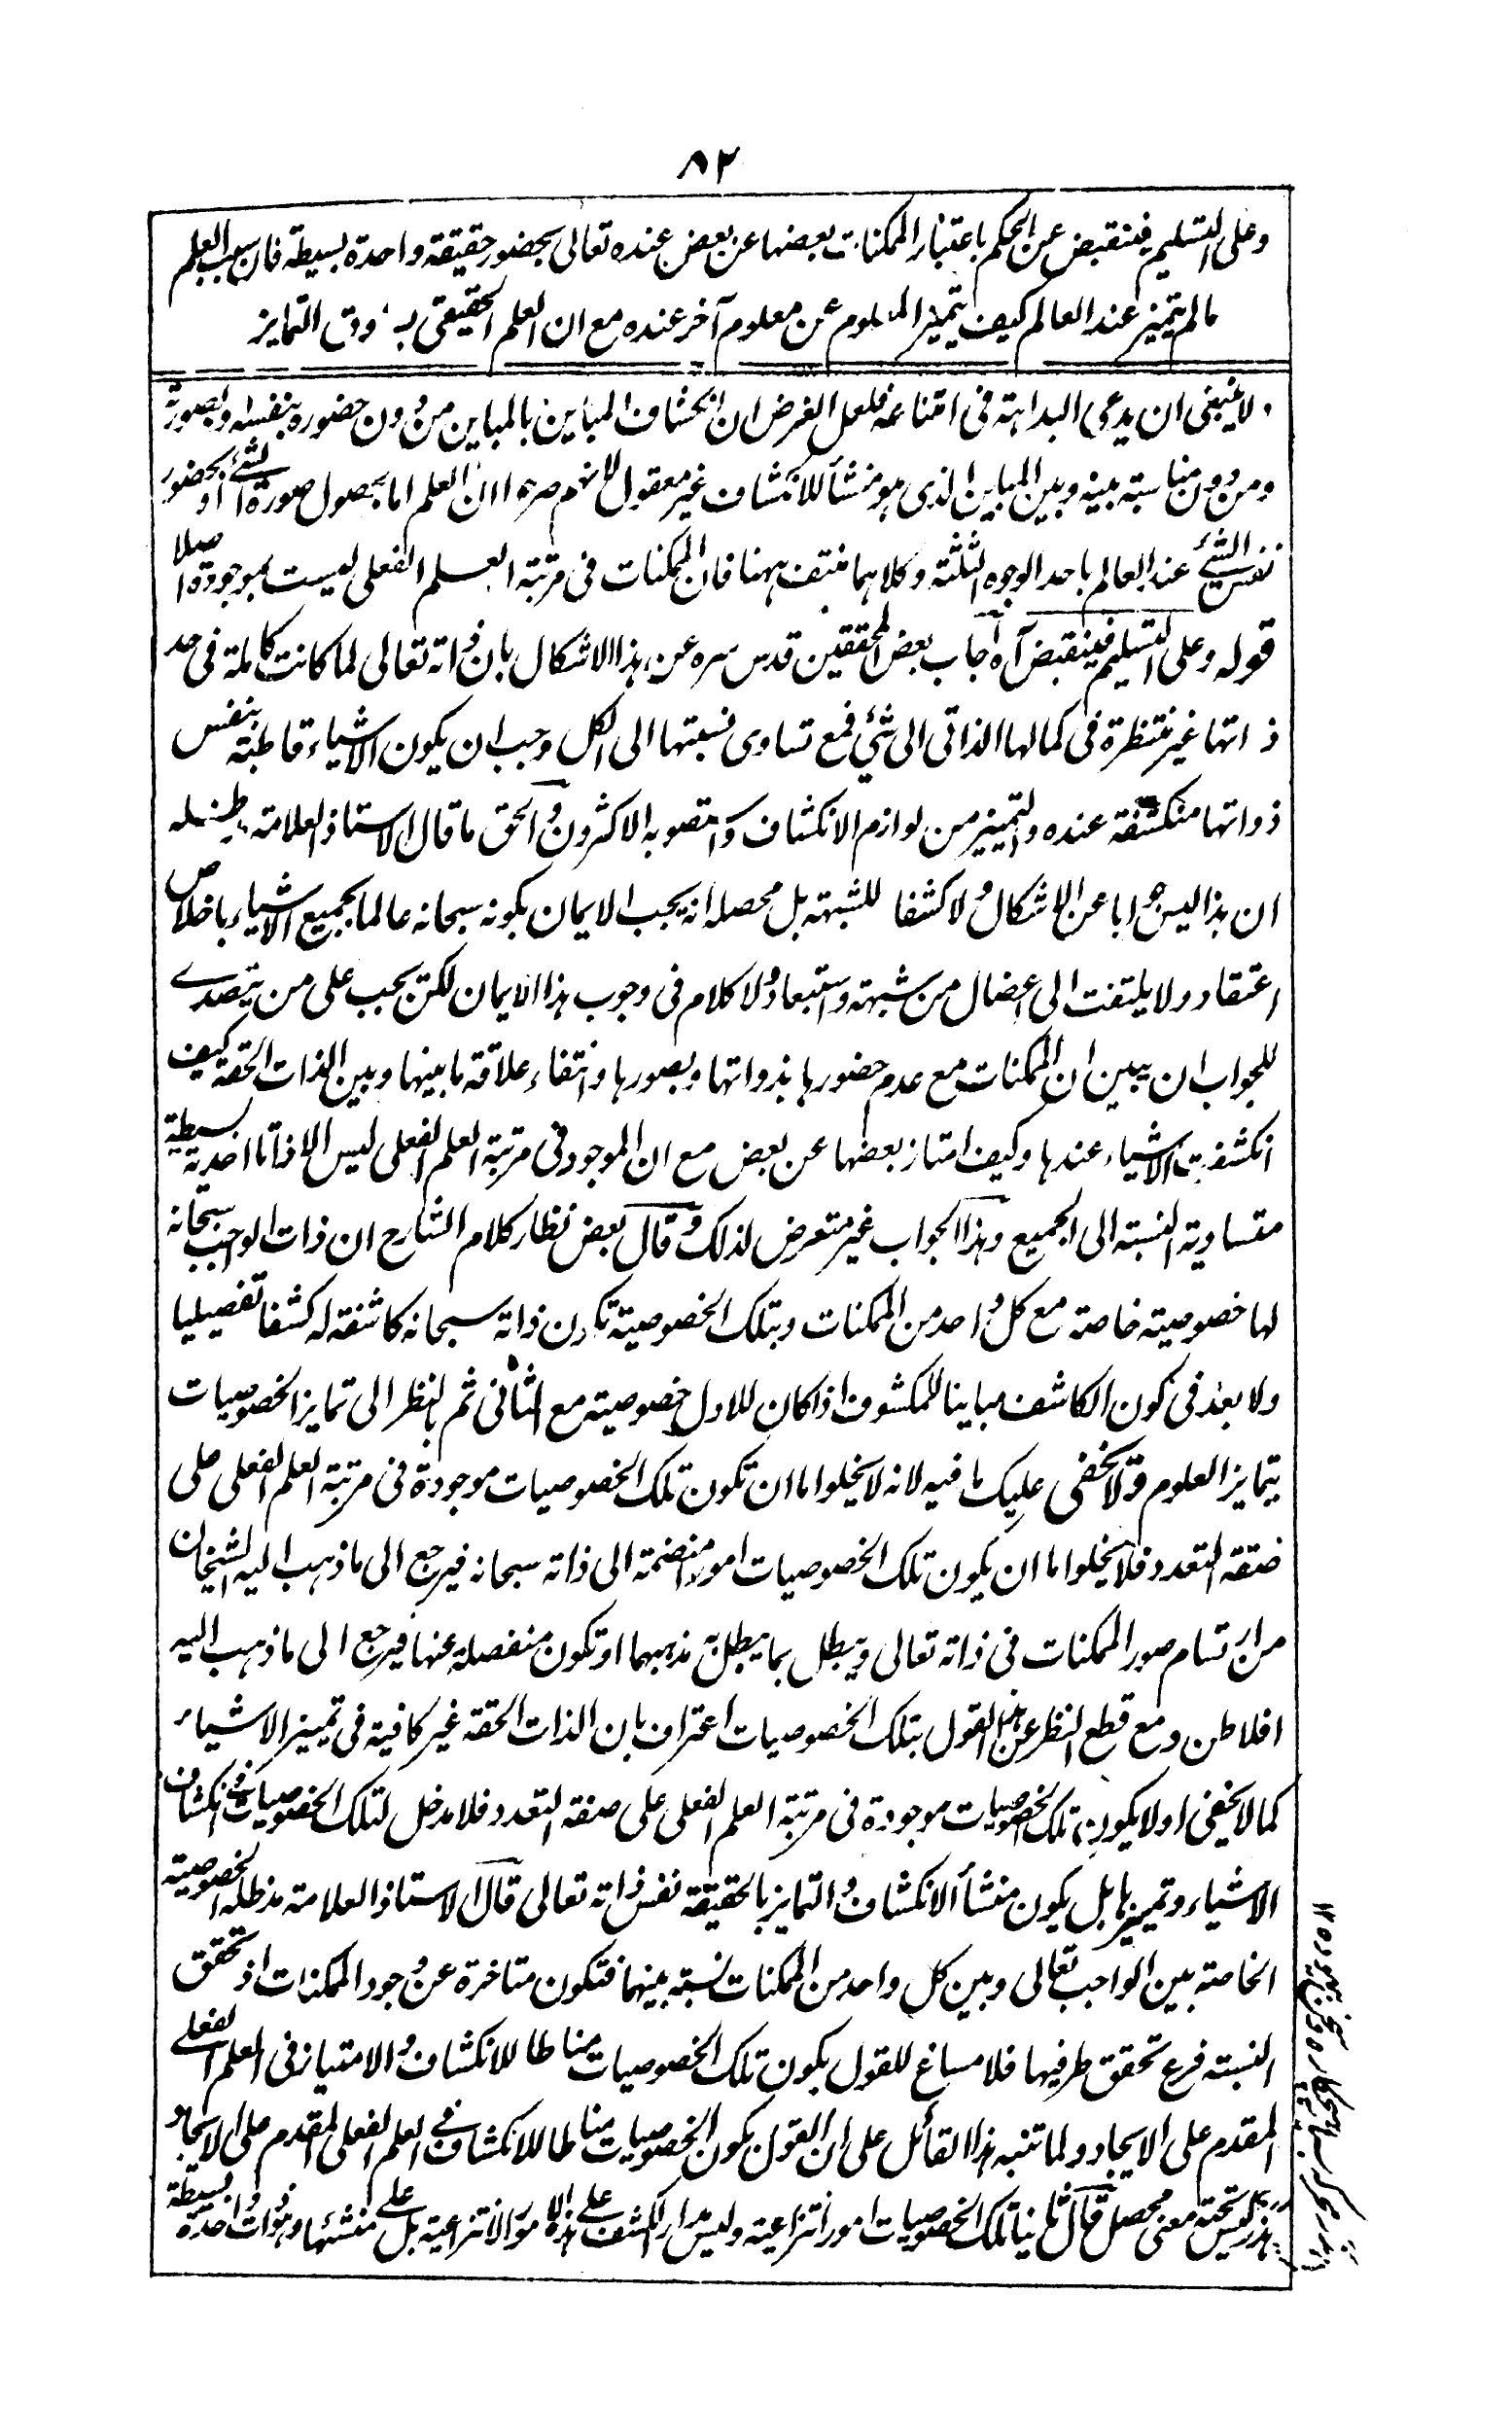 ٨٢
وعلى التسليم فينقبض عن الحكم باعتبار الممكنات بعضها عن بعض عنده تعالى بحضور حقيقة واحدة بسيطة فان سبب العلم
مالم يتميز عند العالم كيف يتميز المعلوم عن معلوم آخر عنده مع ان العلم الحقيقى التمايز
لا ينبغى ان يدعى البداهة فى امتناعه فلعل الغرض ان انكشاف المباين بالمباين من دون حضوره بنفسه او بصورته
ومن دون مناسبته بينه وبين المباين الذى هو منشأ للانكشاف غير معقول لانهم صرحوا ان العلم اما بحصول صورة الشئ او بحضور
نفس الشئ عند العالم باحد الوجوه الثلثة وكلاهما منتف ههنا فان الممكنات فى مرتبة العلم الفعلى ليست بموجودة اصلا
قوله وعلى التسليم فينقبض آه اجاب بعض المحققين قدس سره عن هذا الاشكال بان ذاته تعالى لما كانت كاملة فى حد
ذاتها غير منتظرة فى كمالها الذاتى الى شئ فمع تساوى نسبتها الى الكل وجب ان يكون الاشياء قاطبة بنفس
ذواتها منكشفة عنده والتمييز من لوازم الانكشاف واستصوبه الاكثرون والحق ما قال الاستاذ العلامة مدظله
ان هذا ليس جوابا عن الاشكال ولا كشفا للشبهة بل محصله انه يجب الايمان بكونه سبحانه عالما بجميع الاشياء باخلاص
اعتقاد ولا يلتفت الى اعضال من شبهة واستبعاد ولا كلام فى وجوب هذا الايمان لكن يجب على من يتصدى
للجواب ان يبين ان الممكنات مع عدم حضورها بذواتها وبصورها وانتفاء علاقة ما بينها وبين الذات الحقة كيف
انكشفت الاشياء عندها وكيف امتاز بعضها عن بعض مع ان الموجود فى مرتبة العلم الفعلى ليس الا ذاتا احدية بسيطة
متساوية النسبة الى الجميع وهذا الجواب غير متعرض لذلك وقال بعض نظار كلام الشارح ان ذات الواجب سبحانه
لها خصوصية خاصة مع كل واحد من الممكنات وبتلك الخصوصية تكون ذاته سبحانه كاشفة له كشفا تفصيليا
ولا بعد فى كون الكاشف مباينا للمكشوف اذا كان للاول خصوصية مع الثانى ثم بالنظر الى تمايز الخصوصيات
يتمايز العلوم ولا يخفى عليك ما فيه لانه لا يخلوا ما ان تكون تلك الخصوصيات موجودة فى مرتبة العلم الفعلى على
صفة التعدد فلا يخلوا ما ان يكون تلك الخصوصيات امورا منضمة الى ذاته سبحانه فيرجع الى ما ذهب اليه الشيخان
من ارتسام صور الممكنات فى ذاته تعالى ويبطل بما يبطل به مذهبهما او تكون منفصلة عنها فيرجع الى ما ذهب اليه
افلاطن ومع قطع النظر عن هذا القول بتلك الخصوصيات اعتراف بان الذات الحقة غير كافية فى تمييز الاشياء
كما لا يخفى او لا يكون تلك الخصوصيات موجودة فى مرتبة العلم الفعلى على صفة التعدد فلا مدخل لتلك الخصوصيات فى انكشاف
الاشياء وتمييزها بل يكون منشأ الانكشاف والتمايز بالحقيقة نفس ذاته تعالى قال الاستاذ العلامة مدظله الخصوصية
الخاصة بين الواجب تعالى وبين كل واحد من الممكنات نسبة بينهما فتكون متاخرة عن وجود الممكنات اذ تحقق
النسبة فرع تحقق طرفيها فلا مساغ للقول بكون تلك الخصوصيات مناطا للانكشاف والامتياز فى العلم الفعلى
المقدم على الايجاد ولما تنبه هذا القائل على ان القول بكون الخصوصيات مناطا للانكشاف فى العلم الفعلى المقدم على الايجاد
هذر ليس تحته معنى محصل قال ثانيا تلك الخصوصيات امور انتزاعية وليس مدار الكشف على هذه الامور الانتزاعية بل على منشئها وهو ذات واحدة بسيطة